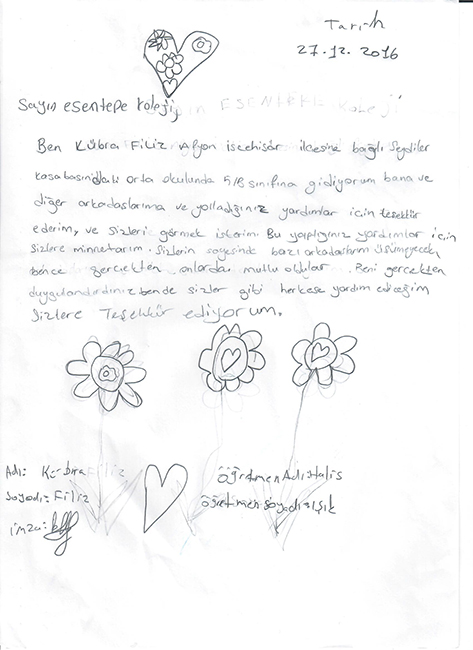 Tarih
27.12.2016
Sayın esentepe koleji
Ben Kübra Filiz Afyon iscehisar ilcesine bağlı Seydiler
kasabasındaki orta okulunda 5/B sınıfına gidiyorum bana ve
diğer arkadaşlarıma ve yolladığınız yardımlar icin teşekür
ederim, ve sizleri görmek isterim. Bu yaptığınız yardımlar icin
sizlere minnetarım. Sizlerin sayesinde bazı arkadaşlarım üşümeyecek,
bence gercekten onlarda mutlu oldular. Beni gercekten
duygulandırdınız bende sizler gibi herkese yardım edeceğim
Sizlere Teşekkür ediyorum.
Adı: Kübra Filiz
Soyadı: Filiz
imza:
öğretmen Adı: Halis
öğretmen soyadı: Işık